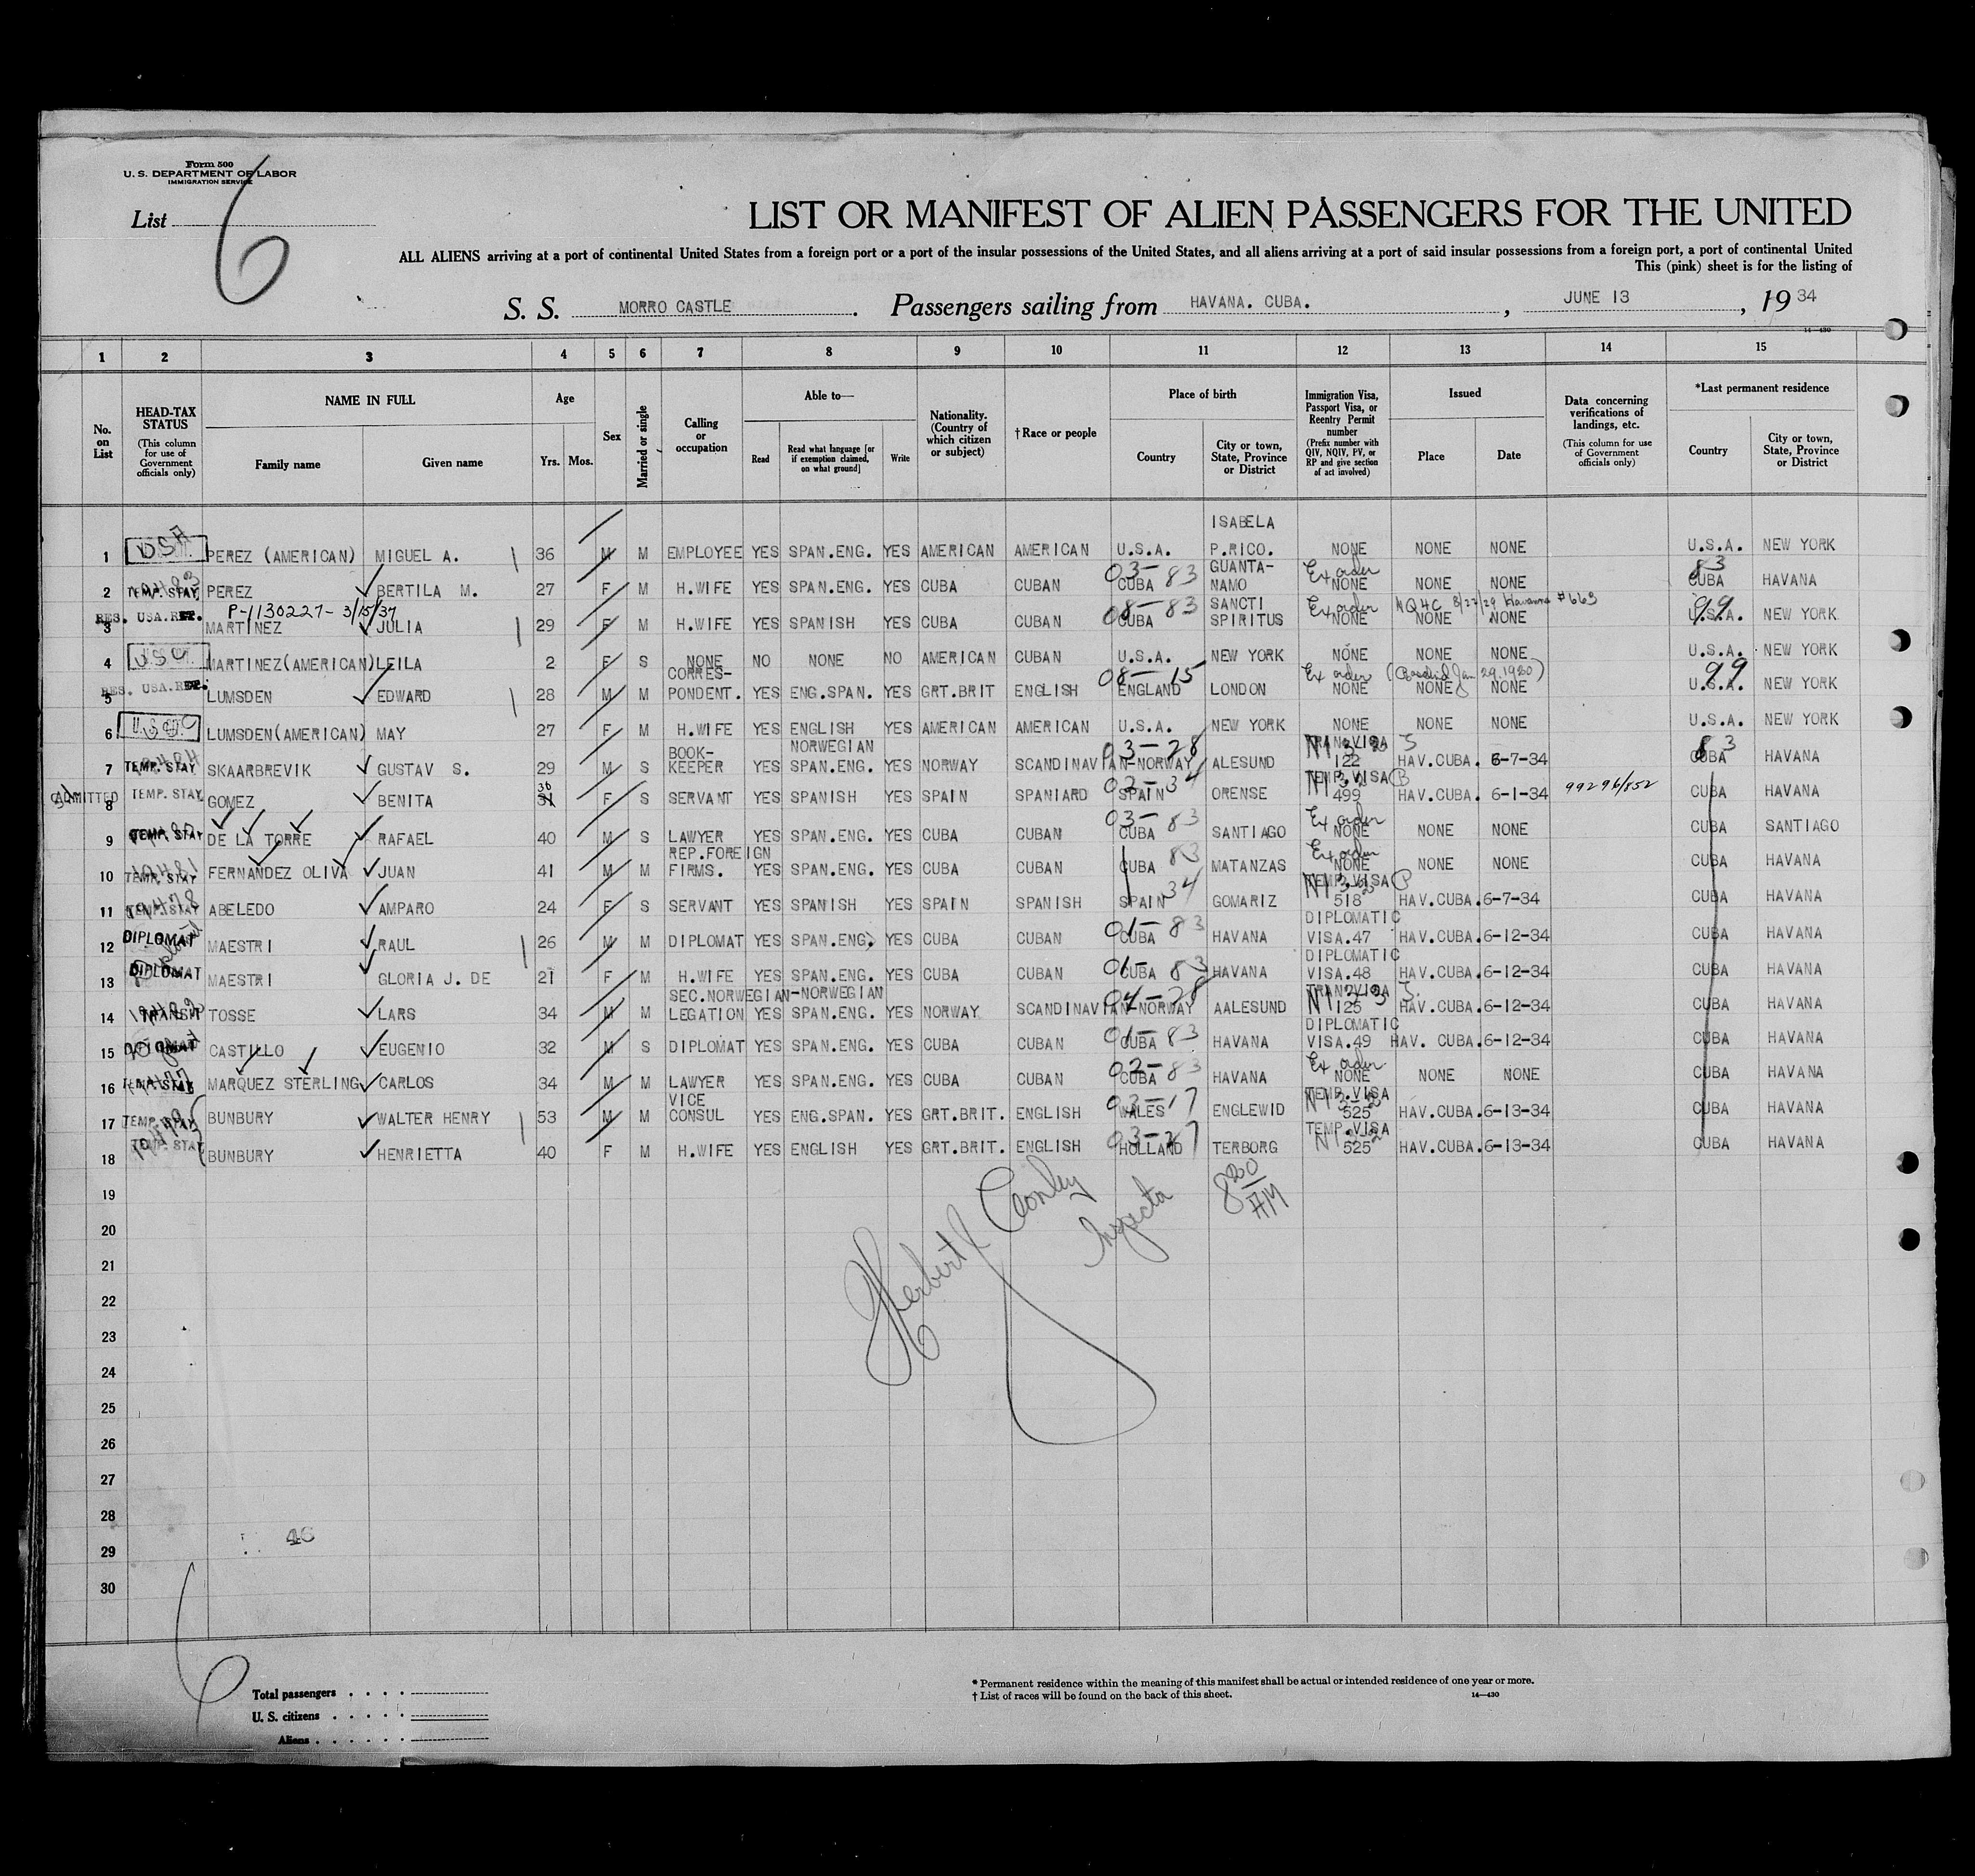 Form 500
U. S. DEPARTMENT OF LABOR
IMMIGRATION SERVICE
List 6
LIST OR MANIFEST OF ALIEN PASSENGERS FOR THE UNITED
ALL ALIENS arriving at a port of continental United States from a foreign port or a port of the insular possessions of the United States, and all aliens arriving at a port of said insular possessions from a foreign port, a port of continental United
This (pink) sheet is for the listing of
S. S. MORRO CASTLE. Passengers sailing from HAVANA. CUBA., JUNE 13, 1934
14—430
1 2 3 4 5 6 7 8 9 10 11 12 13 14 15
No. on List
HEAD-TAX STATUS
(This column for use of Government officials only)
NAME IN FULL
Family name
Given name
Age
Yrs. Mos.
Sex
Married or single
Calling or occupation
Able to—
Read
Read what language [or if exemption claimed, on what ground]
Write
Nationality. (Country of which citizen or subject)
†Race or people
Place of birth
Country
City or town, State, Province or District
Immigration Visa, Passport Visa, or Reentry Permit number
(Prefix number with QIV, NQIV, PV, or RP and give section of act involved)
Issued
Place
Date
Data concerning verifications of landings, etc.
(This column for use of Government officials only)
*Last permanent residence
Country
City or town, State, Province or District
ISABELA
1 USA PEREZ (AMERICAN) MIGUEL A. 36 M M EMPLOYEE YES SPAN.ENG. YES AMERICAN AMERICAN U.S.A. P.RICO. NONE NONE NONE U.S.A. NEW YORK
03-83 GUANTA- Ex order 83
2 TEMP. STAY PEREZ BERTILA M. 27 F M H.WIFE YES SPAN.ENG. YES CUBA CUBAN CUBA NAMO NONE NONE NONE CUBA HAVANA
RES. USA.RET. P-1130227- 3/15/37 08-83 SANCTI Ex order NQ4C 8/27/29 Havana #663 99
3 MARTINEZ JULIA 29 F M H.WIFE YES SPANISH YES CUBA CUBAN CUBA SPIRITUS NONE NONE NONE U.S.A. NEW YORK
4 USC MARTINEZ(AMERICAN)LEILA 2 F S NONE NO NONE NO AMERICAN CUBAN U.S.A. NEW YORK NONE NONE NONE U.S.A. NEW YORK
RES. USA.RET. CORRES- 08-15 Ex order Jan 29, 1920) 99
5 LUMSDEN EDWARD 28 M M PONDENT. YES ENG.SPAN. YES GRT.BRIT ENGLISH ENGLAND LONDON NONE NONE NONE U.S.A. NEW YORK
6 LUMSDEN(AMERICAN) MAY 27 F M H.WIFE YES ENGLISH YES AMERICAN AMERICAN U.S.A. NEW YORK NONE NONE NONE U.S.A. NEW YORK
BOOK- NORWEGIAN 03-28 TRAN.VISA 83
7 TEMP. STAY SKAARBREVIK GUSTAV S. 29 M S KEEPER YES SPAN.ENG. YES NORWAY SCANDINAVIAN-NORWAY ALESUND 122 HAV.CUBA. 6-7-34 CUBA HAVANA
30 02-34 TEMP.VISA
ADMITTED 8 TEMP. STAY GOMEZ BENITA 31 F S SERVANT YES SPANISH YES SPAIN SPANIARD SPAIN ORENSE 499 HAV.CUBA. 6-1-34 99296/852 CUBA HAVANA
03-83 Ex order
9 TEMP. STAY DE LA TORRE RAFAEL 40 M S LAWYER YES SPAN.ENG. YES CUBA CUBAN CUBA SANTIAGO NONE NONE NONE CUBA SANTIAGO
REP.FOREIGN 83 Ex order
10 TEMP. STAY FERNANDEZ OLIVA JUAN 41 M M FIRMS. YES SPAN.ENG. YES CUBA CUBAN CUBA MATANZAS NONE NONE NONE CUBA HAVANA
34 TEMP.VISA
11 TEMP. STAY ABELEDO AMPARO 24 F S SERVANT YES SPANISH YES SPAIN SPANISH SPAIN GOMARIZ 518 HAV.CUBA.6-7-34 CUBA HAVANA
01-83 DIPLOMATIC
12 DIPLOMAT MAESTRI RAUL 26 M M DIPLOMAT YES SPAN.ENG. YES CUBA CUBAN CUBA HAVANA VISA.47 HAV.CUBA.6-12-34 CUBA HAVANA
01-83 DIPLOMATIC
13 DIPLOMAT MAESTRI GLORIA J. DE 21 F M H.WIFE YES SPAN.ENG. YES CUBA CUBAN CUBA HAVANA VISA.48 HAV.CUBA.6-12-34 CUBA HAVANA
SEC.NORWEGIAN-NORWEGIAN 04-28 TRAN.VISA
14 TRANSIT TOSSE LARS 34 M M LEGATION YES SPAN.ENG. YES NORWAY SCANDINAVIAN-NORWAY AALESUND 125 HAV.CUBA.6-12-34 CUBA HAVANA
01-83 DIPLOMATIC
15 DIPLOMAT CASTILLO EUGENIO 32 M S DIPLOMAT YES SPAN.ENG. YES CUBA CUBAN CUBA HAVANA VISA.49 HAV. CUBA.6-12-34 CUBA HAVANA
02-83 Ex order
16 TEMP. STAY MARQUEZ STERLING CARLOS 34 M M LAWYER YES SPAN.ENG. YES CUBA CUBAN CUBA HAVANA NONE NONE NONE CUBA HAVANA
VICE 03-17 TEMP.VISA
17 TEMP. STAY BUNBURY WALTER HENRY 53 M M CONSUL YES ENG.SPAN. YES GRT.BRIT. ENGLISH WALES ENGLEWID 525 HAV.CUBA.6-13-34 CUBA HAVANA
03-27 TEMP.VISA
18 TEMP. STAY BUNBURY HENRIETTA 40 F M H.WIFE YES ENGLISH YES GRT.BRIT. ENGLISH HOLLAND TERBORG 525 HAV.CUBA.6-13-34 CUBA HAVANA
19
20
21
22
23
24
25
26
27
28
29
30
Herbert J Conley
Inspector
8 30 AM
46
6
Total passengers
U. S. citizens
Aliens
* Permanent residence within the meaning of this manifest shall be actual or intended residence of one year or more.
† List of races will be found on the back of this sheet.
14—430